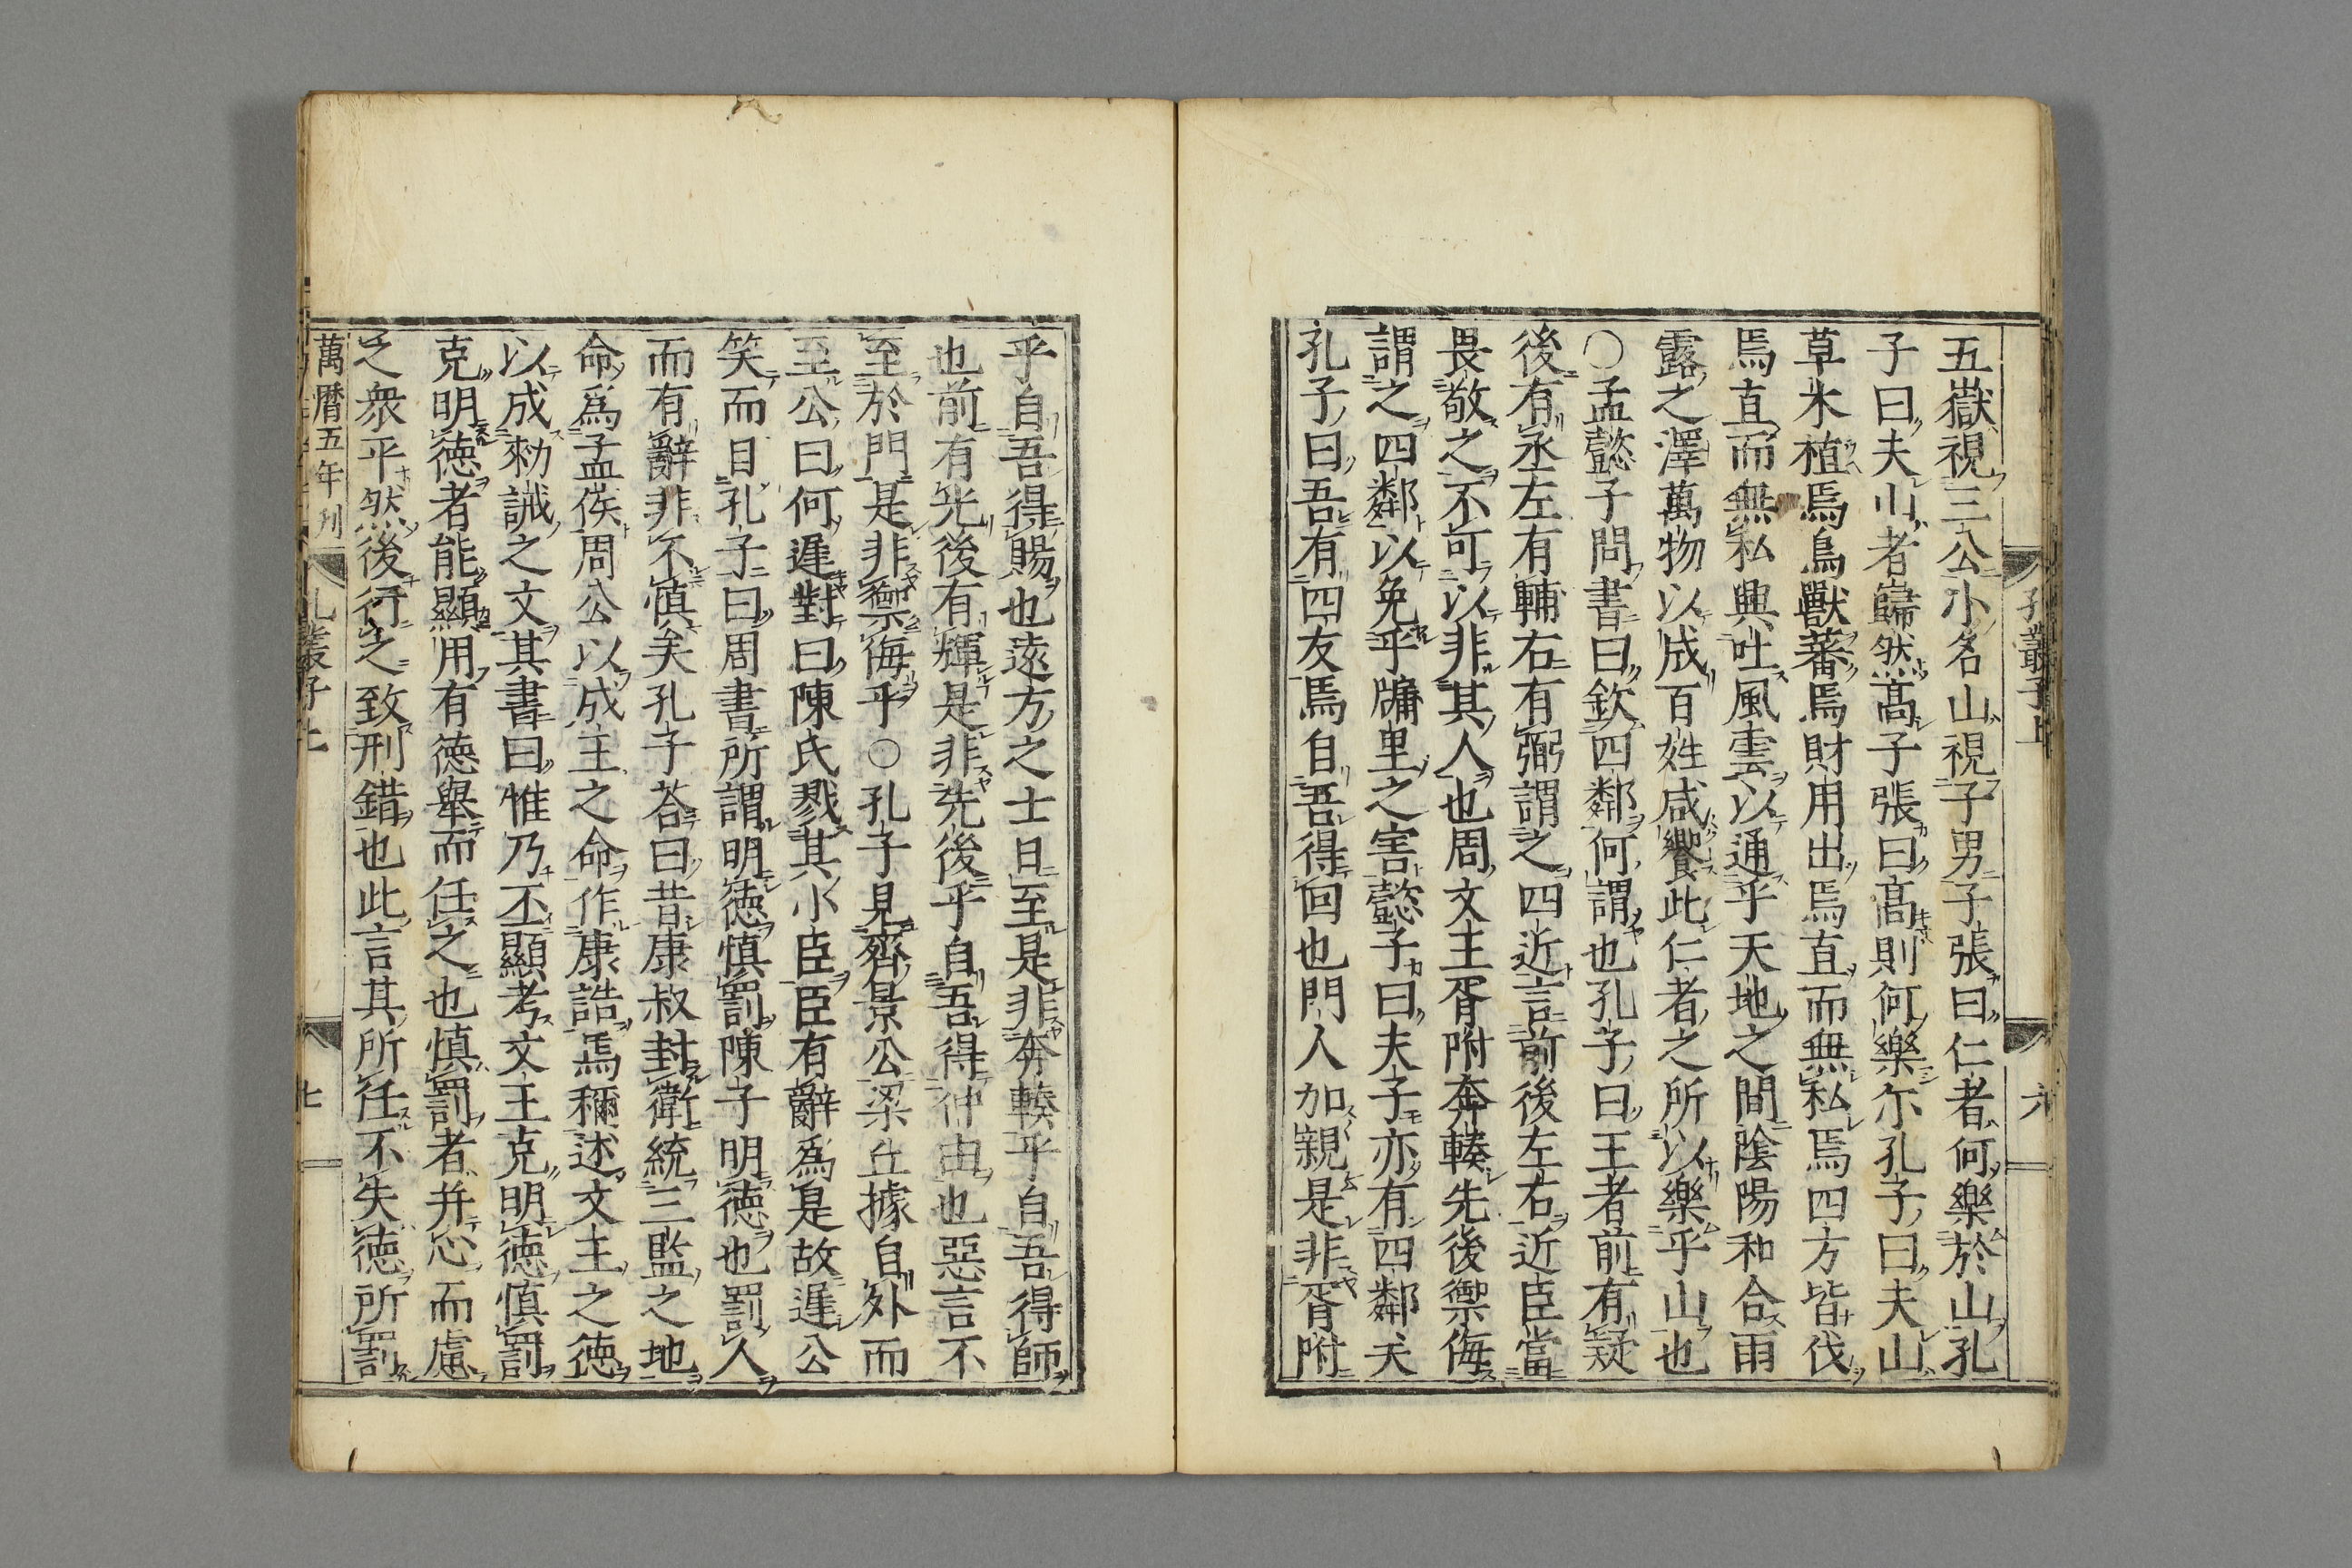 孔叢子上 六
五嶽視三公小名山視子男子張曰仁者何樂於山孔
子曰夫山者巋然髙子張曰髙則何樂尓孔子曰夫山
草木植焉鳥獸蕃焉財用出焉直而無私焉四方皆伐
焉直而無私興吐風雲以通乎天地之間隂陽和合雨
露之澤萬物以成百姓咸饗此仁者之所以樂乎山也
○孟懿子問書曰欽四鄰何謂也孔子曰王者前有疑
後有丞左有輔右有弼謂之四近言前後左右近臣當
畏敬之不可以非其人也周文王胥附奔輳先後禦侮
謂之四鄰以免乎牖里之害懿子曰夫子亦有四鄰夫
孔子曰吾有四友焉自吾得回也門人加親是非胥附
乎自吾得賜也遠方之士日至是非奔輳乎自吾得師
也前有光後有輝是非先後乎自吾得仲由也惡言不
至於門是非禦侮乎○孔子見齊景公梁丘據自外而
至公曰何遲對曰陳氏戮其小臣臣有辭爲是故遲公
笑而目孔子曰周書所謂明德慎罰陳子明德也罰人
而有辭非不慎矣孔子荅曰昔康叔封衛統三監之地
命爲孟侯周公以成王之命作康誥焉稱述文王之德
以成勑誡之文其書曰惟乃丕顯考文王克明德慎罰
克明德者能顯用有德舉而任之也慎罰者并心而慮
之衆平然後行之致刑錯也此言其所任不失德所罰
萬曆五年刊 孔叢子上 七